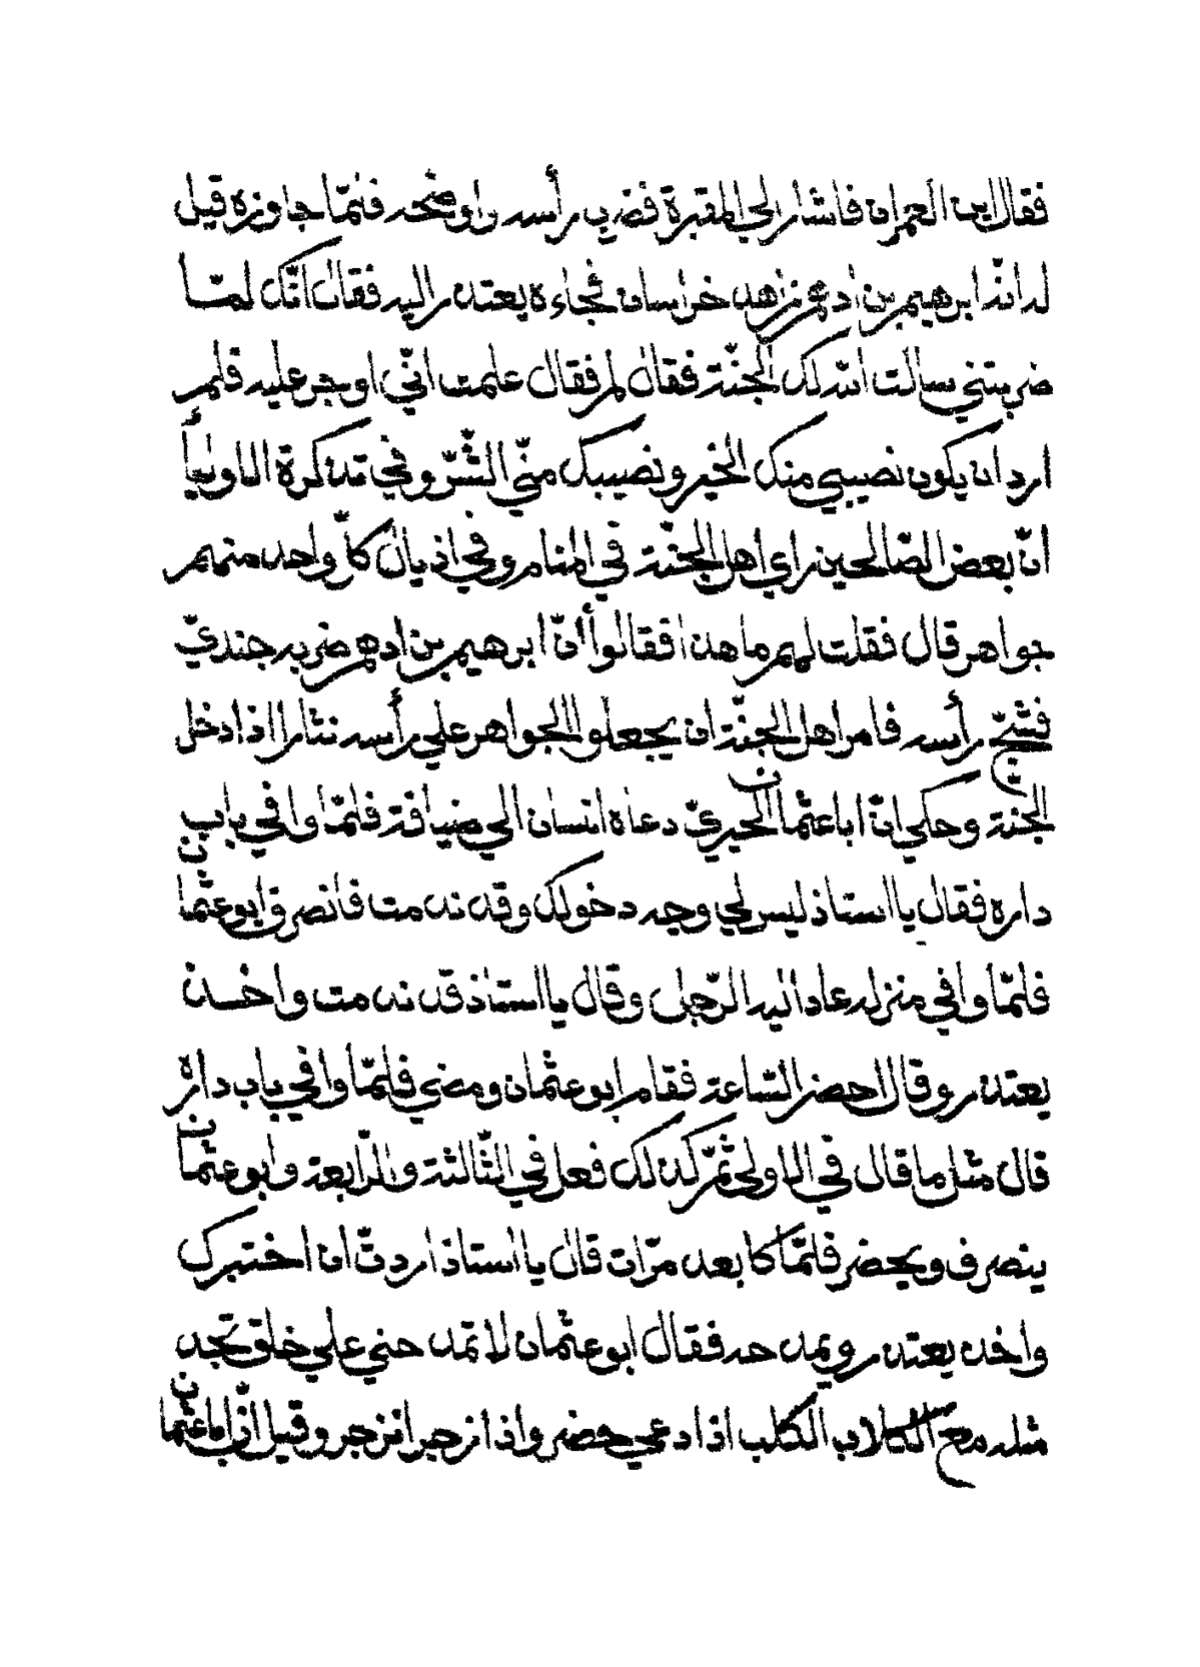 فقال اين العمران فاشار الي المقبرة فضرب رأسه واوضحه فلمّا جاوزه قيل
له انّه ابرهيم بن ادهم زاهد خراسان فجاءه يعتذر اليه فقال انّك لمّا
ضربتني سالت الله لك الجنّة فقال لم فقال علمت انّي اوجر عليه فلم
ارد ان يكون نصيبي منك الخير ونصيبك منّي الشّرّ وفي تذكرة الاوليأ
انّ بعض الصّالحين راي اهل الجنّة في المنام وفي اذيال كلّ واحد منهم
جواهر قال فقلت لهم ما هذا فقالوا أنّ ابرهيم بن ادهم ضربه جنديّ
فشجّ رأسه فامر اهل الجنّة ان يجعلوا الجواهر علي رأسه نثارا اذا دخل
الجنة وحكي انّ ابا عثمان الحيريّ دعاه انسان الي ضيافة فلمّا وافي باب
داره فقال يا استاذ ليس لي وجه دخولك وقد ندمت فانصرف ابو عثمان
فلمّا وافي منزله عاد اليه الرّجل وقال يا استاذ قد ندمت واخذ
يعتذر وقال احضر السّاعة فقام ابو عثمان ومضي فلمّا وافي باب داره
قال مثل ما قال في الاولي ثمّ كذلك فعل في الثّالثة والرّابعة وابو عثمان
ينصرف ويحضر فلمّا كا بعد مرّات قال يا استاذ اردتّ ان اختبرك
واخذ يعتذر ويمدحه فقال ابو عثمان لا تمدحني علي خلق تجد
مثله مع الكلاب الكلب اذا دعي حضر واذا زجر انزجر وقيل انّ ابا عثمان